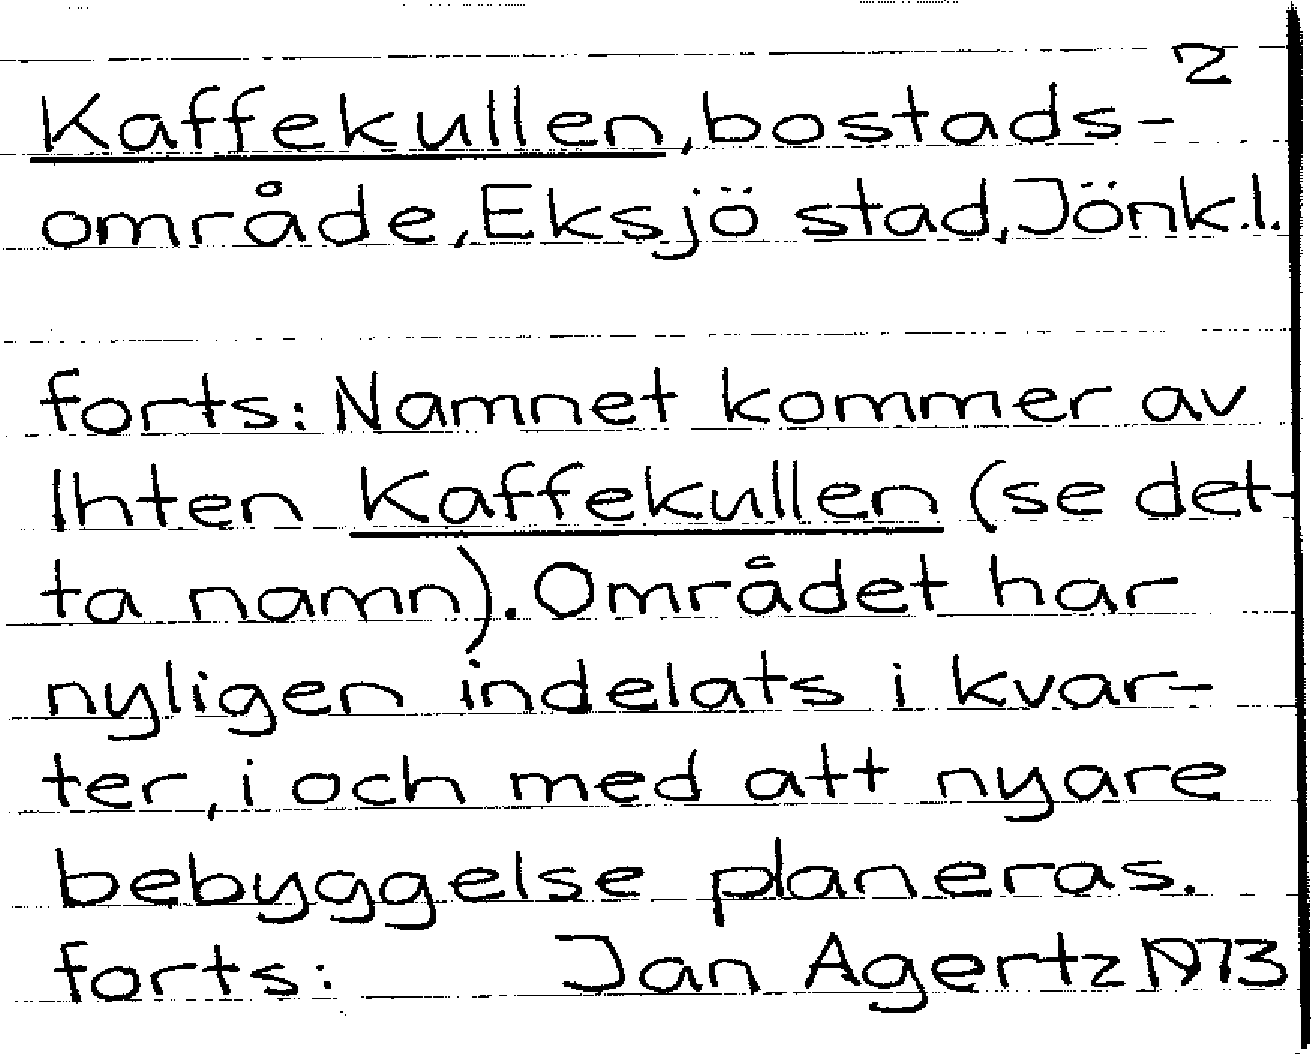 2
Kaffekullen, bostads-
område, Eksjö stad, Jönk.l.
forts: Namnet kommer av
Ihten Kaffekullen (se det-
ta namn). Området har
nyligen indelats i kvar-
ter, i och med att nyare
bebyggelse planeras.
forts: Jan Agertz 1973